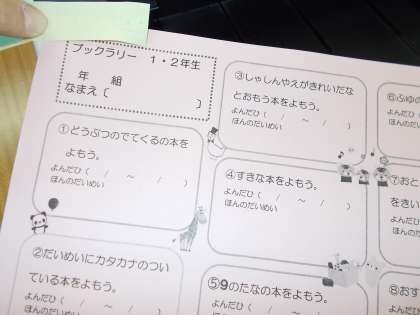 ブックラリー 1・2年生
年 組
なまえ( )
①どうぶつのでてくる本を
よもう。
よんだひ( / ~ / )
ほんのだいめい
②だいめいにカタカナのつい
ている本をよもう。
よんだひ( / ~ / )
ほんのだいめい
③しゃしんやえがきれいだな
とおもう本をよもう。
よんだひ( / ~ / )
ほんのだいめい
④すきな本をよもう。
よんだひ( / ~ / )
ほんのだいめい
⑤9のたなの本をよもう。
よんだひ( / ~ / )
⑥ふゆの
よんだひ
ほんのだ
⑦おと
をきい
よんだ
ほんの
⑧おす
よんだ